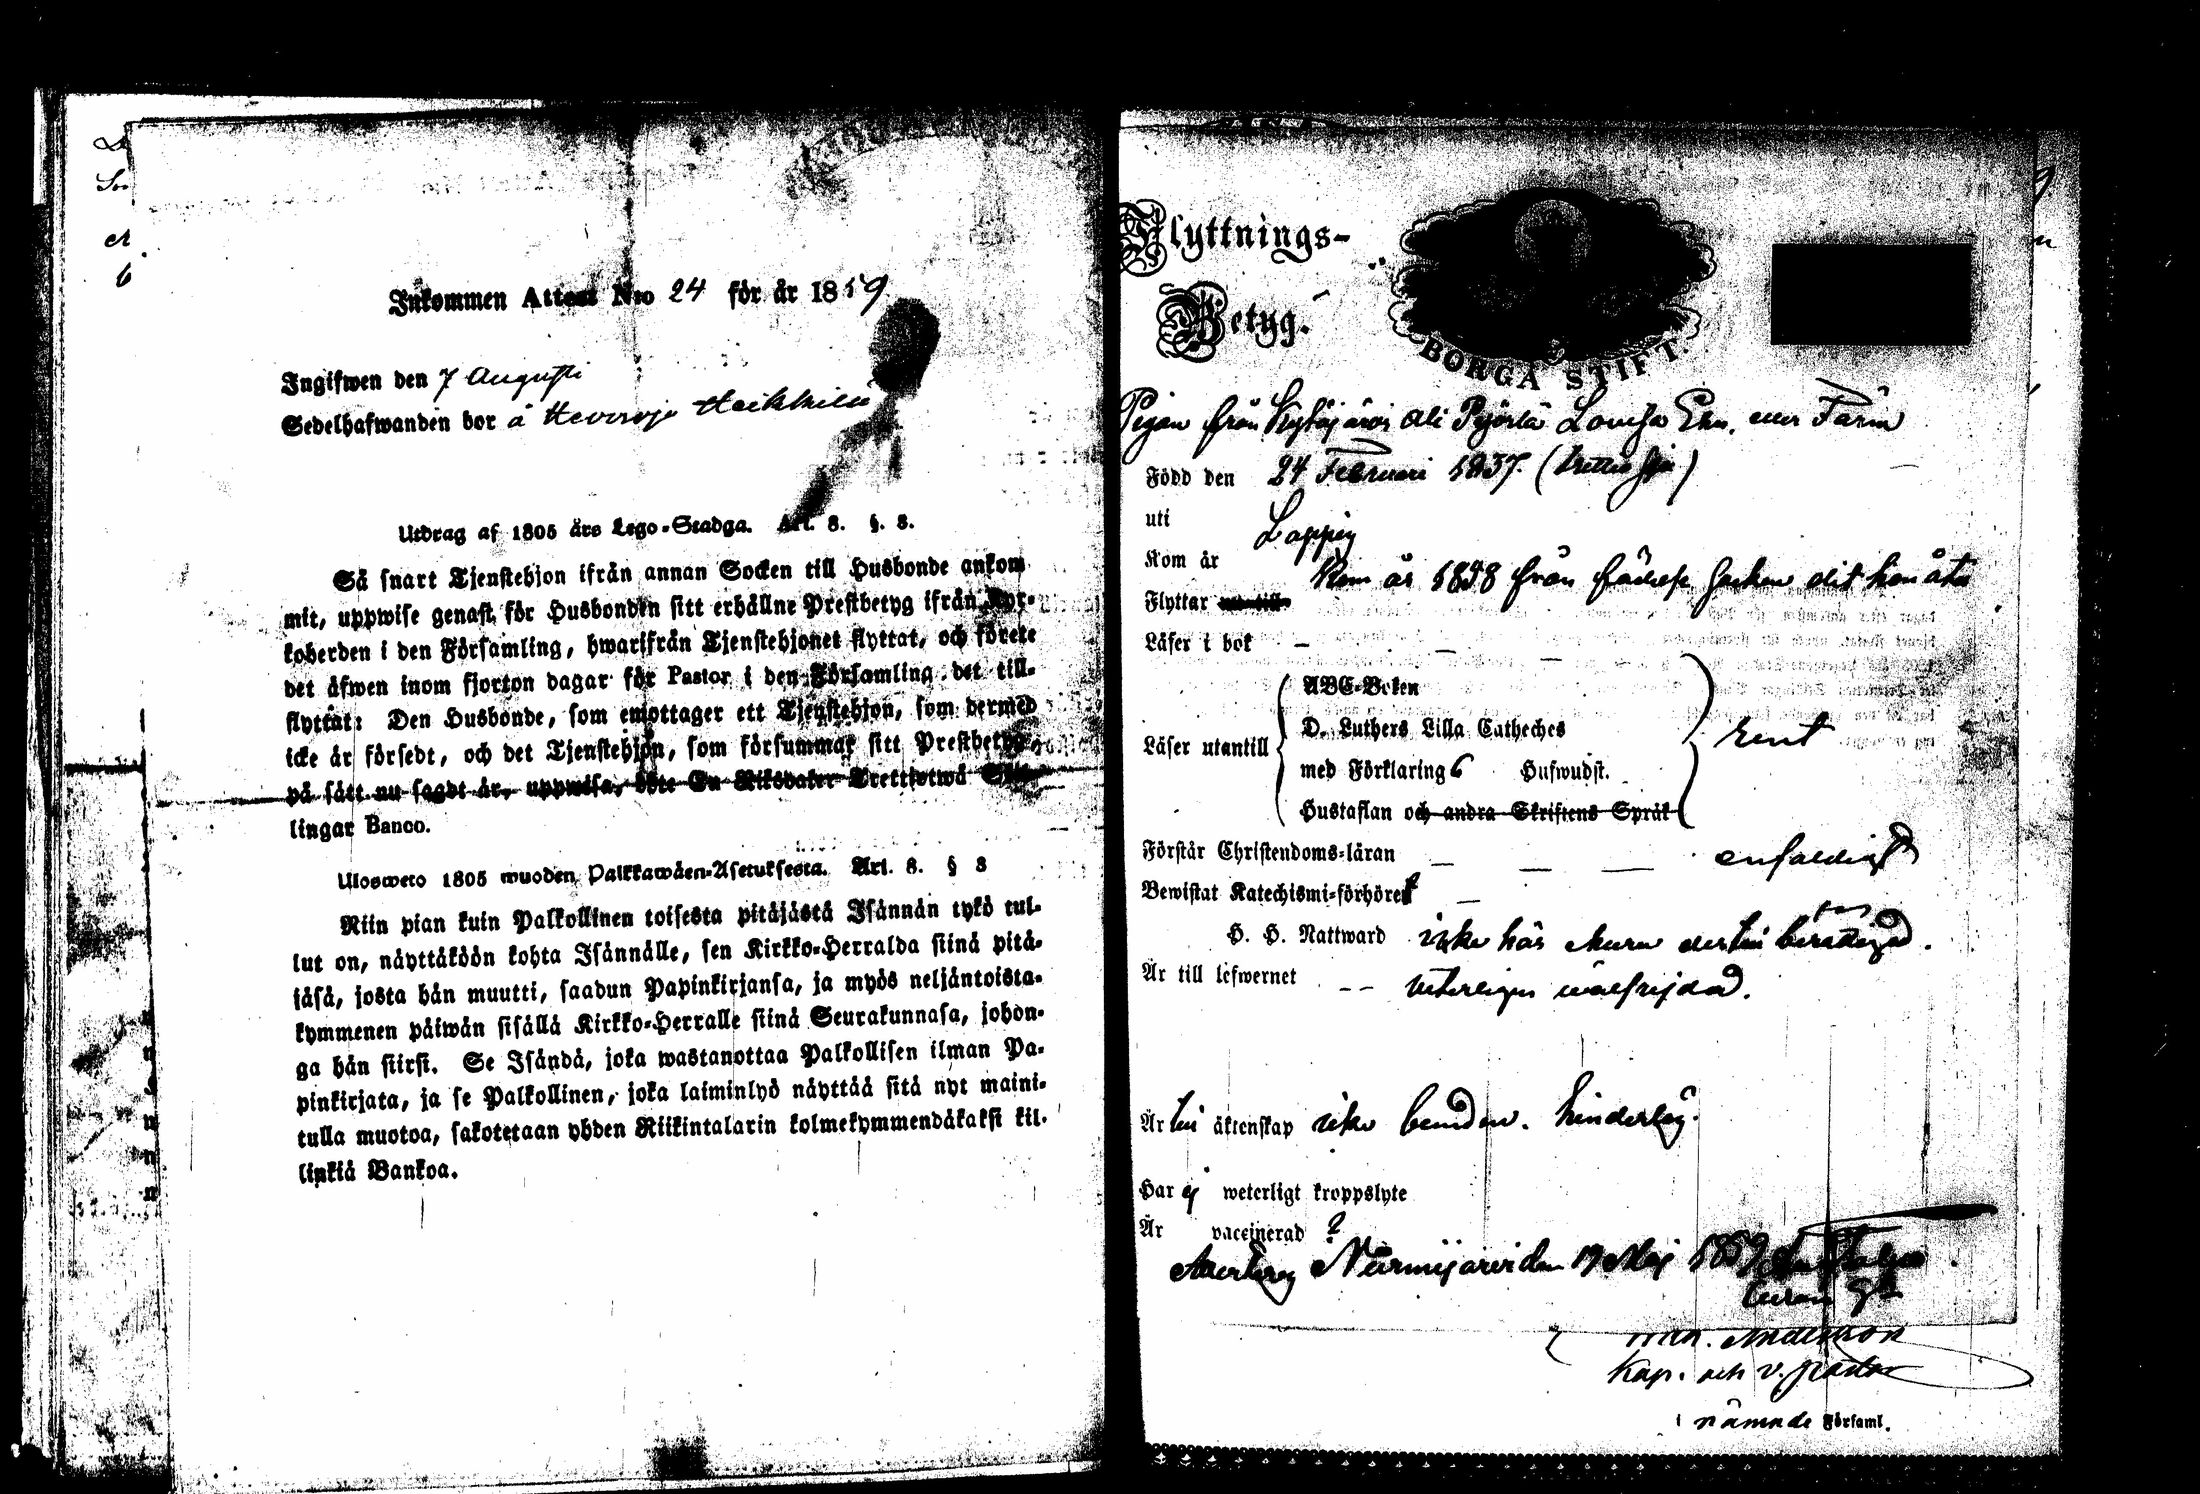 Inkommen Attest N:o 24 för år 1859
Ingifwen den 7 Augusti
Sedelhafwanden bor å Heikkilä
Utdrag af 1805 års Lego-Stadga. Art. 8. §. 8.
Så snart Tjenstehjon ifrån annan Socken till Husbonde ankom-
mit, uppwise genast för Husbonden sitt erhållne Prestbetyg ifrån Kyr-
koherden i den Församling, hwarifrån Tjenstehjonet flyttat, och förete
det äfwen inom fjorton dagar för Pastor i den Församling det till-
flyttat: Den Husbonde, som emottager ett Tjenstehjon, som dermed
icke är försedt, och det Tjenstehjon, som försummar sitt Prestbetyg
på sätt nu sagdt är, uppwisa, böte En Riksdaler Trettiotwå Skil-
lingar Banco.
Ulosweto 1805 wuoden Palkkawäen-Asetuksesta. Art. 8. § 8
Niin pian kuin Palkollinen toisesta pitäjästä Isännän tykö tul-
lut on, näyttäköön kohta Isännälle, sen Kirkko-Herralda siinä pitä-
jäsä, josta hän muutti, saadun Papinkirjansa, ja myös neljäntoista-
kymmenen päiwän sisällä Kirkko-Herralle siinä Seurakunnasa, johon-
ga hän siirsi. Se Isändä, joka wastanottaa Palkollisen ilman Pa-
pinkirjata, ja se Palkollinen, joka laiminlyö näyttää sitä nyt maini-
tulla muotoa, sakotetaan yhden Riikintalarin kolmekymmendäkaksi kil-
linkiä Bankoa.
Flyttnings-
Betyg.
BORGÅ STIFT.
Pigan från Kytäjärvi Ali Pyörlä Lovisa
Född den 24 Februari 1837.
uti Loppis
Kom år
Kom år 1858 från
Flyttar
Läser i bok
Läser utantill
ABC-Boken
D. Luthers Lilla Catheches
med Förklaring 6 Hufwudst.
Hustaflan och andra Skriftens Språk
rent
Förstår Christendoms-läran enfaldigt
Bewistat Katechismi-förhören
H. H. Nattward icke här
Är till lefwernet wälfrejdad.
Är till äktenskap icke bunden. hinderlös.
Har ej weterligt kroppslyte
Är vaccinerad ?
Nurmijärvi den 19 Maj 1859
Andersson
Kap. och v. pastor
i nämnde Församl.